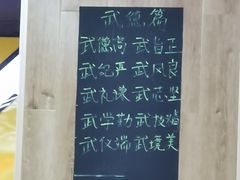 武德篇
武德尚 武旨正
武纪严 武风良
武礼谦 武志坚
武学勤 武技精
武仪端 武境美